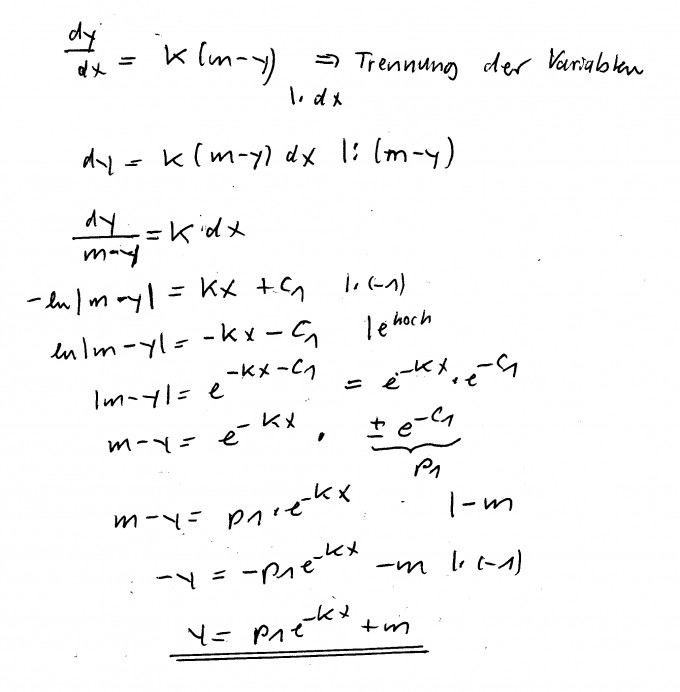 dy/dx = k (m-y) ⇒ Trennung der Variablen
|· dx
dy = k (m-y) dx |: (m-y)
dy/(m-y) = k·dx
-ln|m-y| = kx + C₁ |·(-1)
ln|m-y| = -kx - C₁ |e^hoch
|m-y| = e^(-kx-C₁) = e^(-kx) · e^(-C₁)
m-y = e^(-kx) · ± e^(-C₁)
p₁
m-y = p₁ · e^(-kx) |-m
-y = -p₁e^(-kx) - m |·(-1)
y = p₁e^(-kx) + m